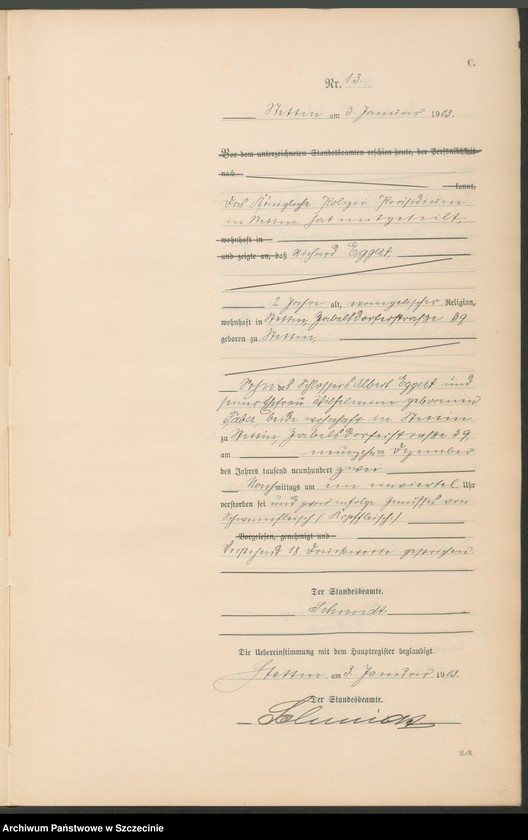 C.
Nr. 13.
Stettin am 3. Januar 1903.
Vor dem unterzeichneten Standesbeamten erschien heute, der Persönlichkeit
nach
kannt,
Das Königliche Polizei Präsidium
in Stettin hat mitgeteilt,
wohnhaft in
und zeigte an, daß Richard Eggert,
2 Jahre alt, evangelischer Religion,
wohnhaft in Stettin, Zabelsdorferstraße 39
geboren zu Stettin,
Sohn des Schlossers Albert Eggert und
seiner Ehefrau Wilhelmine geborenen
Faber, beide wohnhaft in Stettin
zu Stettin, Zabelsdorferstraße 39,
am neunzehn Dezember
des Jahres tausend neunhundert zwei
Nachmittags um ein einviertel Uhr
verstorben sei und zwar infolge Genusses von
Schweinefleisch (Kopffleisch)
Vorgelesen, genehmigt und
Vorstehend 18 Druckworte gestrichen
Der Standesbeamte.
Schmidt.
Die Uebereinstimmung mit dem Hauptregister beglaubigt.
Stettin am 3. Januar 1903.
Der Standesbeamte.
Schmidt
Archiwum Państwowe w Szczecinie